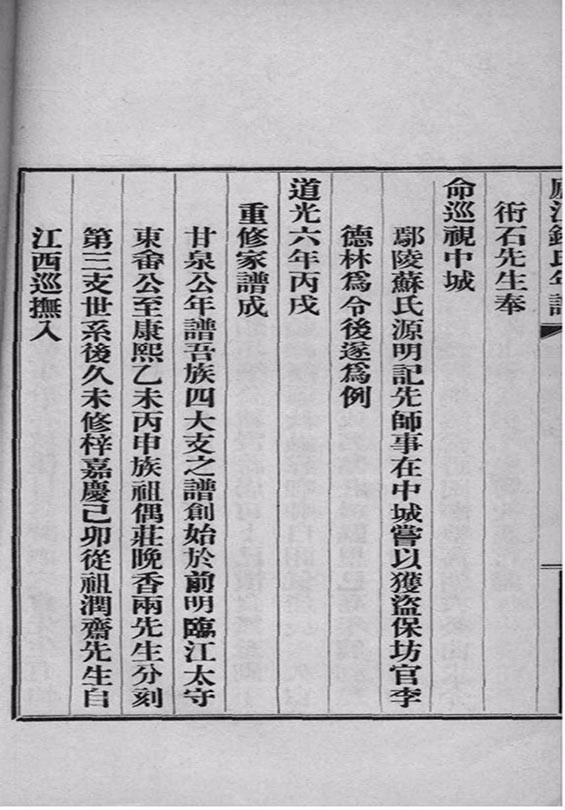 廬江錢氏年譜
衎石先生奉
命巡視中城
鄢陵蘇氏源明記先師事在中城嘗以獲盜保坊官李
德林爲令後遂爲例
道光六年丙戌
重修家譜成
甘泉公年譜吾族四大支之譜創始於前明臨江太守
東畬公至康熙乙未丙申族祖偶莊晚香兩先生分刻
第三支世系後久未修梓嘉慶己卯從祖潤齋先生自
江西巡撫入